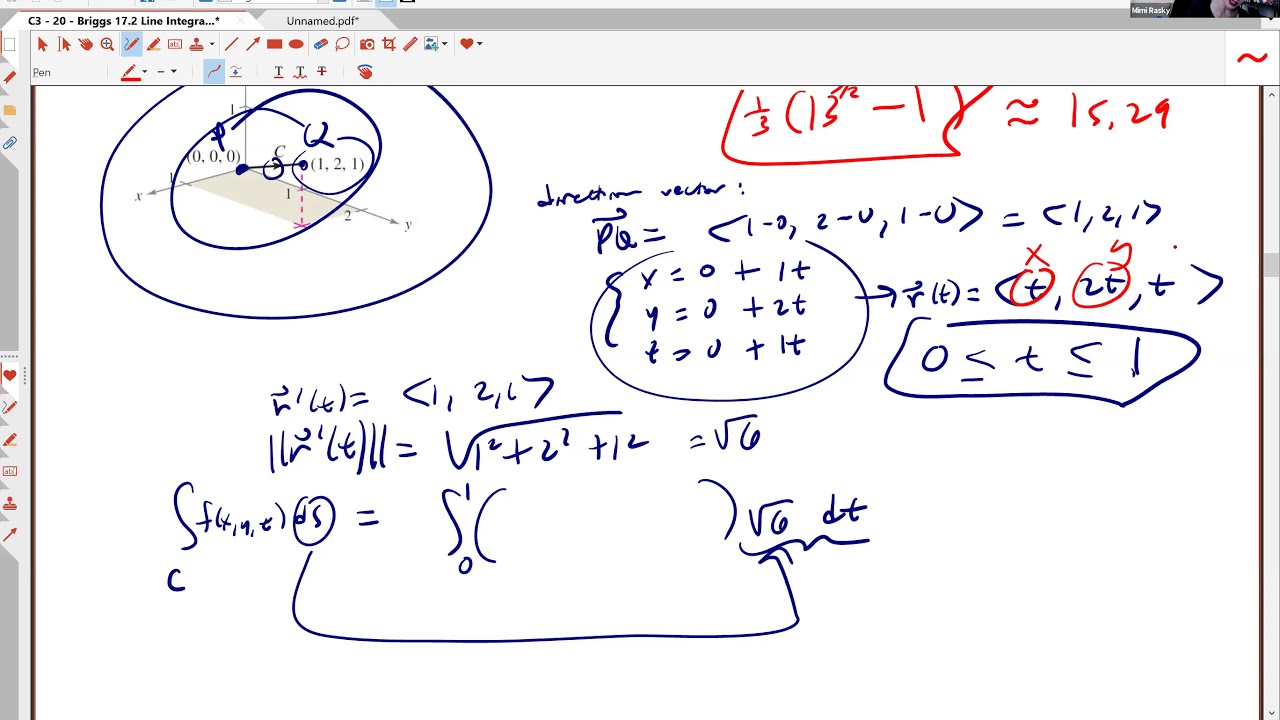 Mimi Rasky
C3 - 20 - Briggs 17.2 Line Integra...* Unnamed.pdf*
Pen
1/3 (13^3/2 − 1) ≈ 15.29
1
P Q
(0, 0, 0) C (1, 2, 1)
1
x 1 2 y
direction vector:
PQ = <1-0, 2-0, 1-0> = <1, 2, 1>
x = 0 + 1t
y = 0 + 2t
z = 0 + 1t
x y
→ r(t) = <t, 2t, t>
0 ≤ t ≤ 1
r'(t) = <1, 2, 1>
||r'(t)|| = √1² + 2² + 1² = √6
∫ f(x,y,z) ds = ∫ 1 0 ( ) √6 dt
C